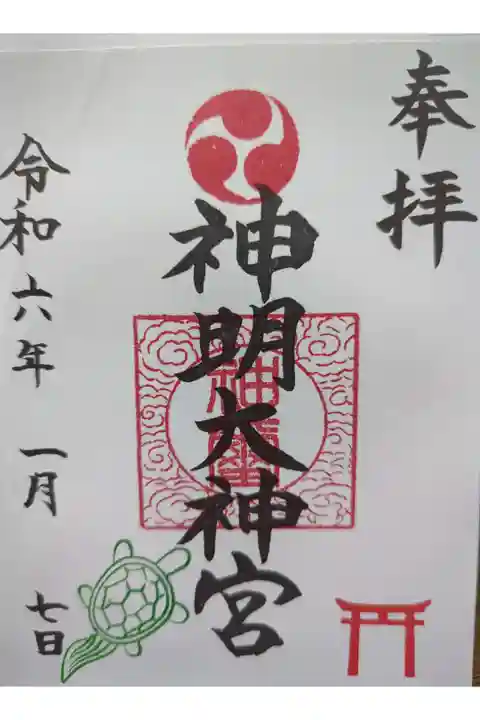 奉拝
神明大神宮
令和六年一月七日